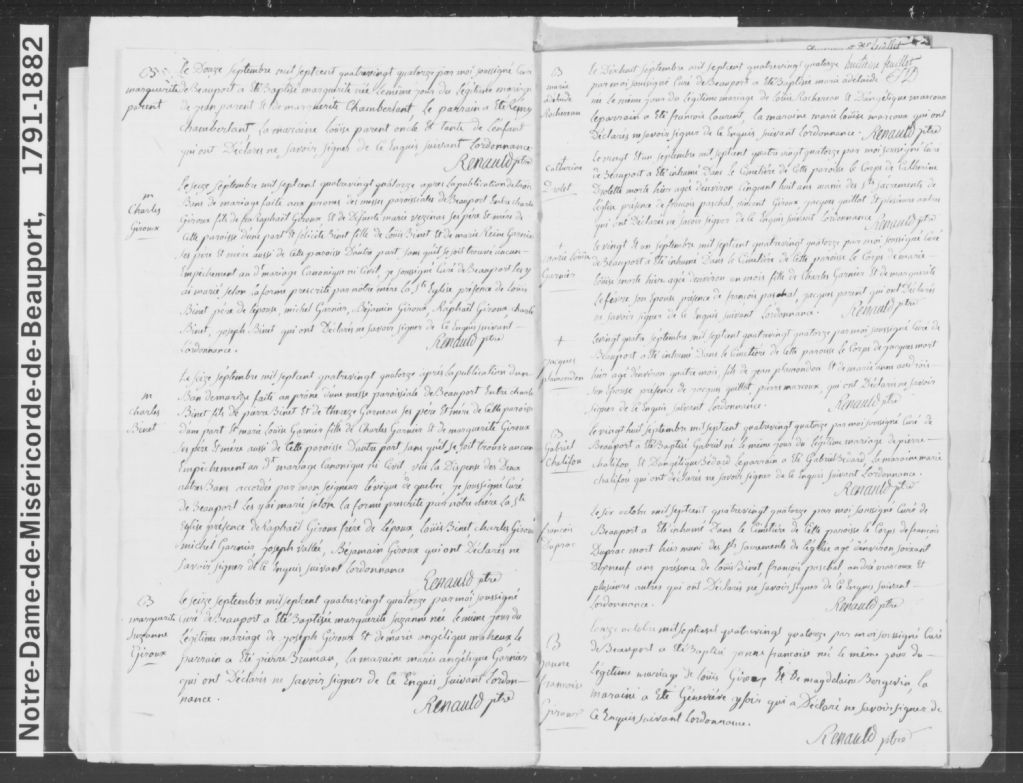 Notre-Dame-de-Miséricorde-de-Beauport, 1791-1882
B
marguerite
parent
Le Douze Septembre mil Sept cent quatrevingt quatorze par moi soussigné Curé
de Beauport a Eté Baptisé marguerite née le même jour du légitime mariage
de jean parent Et de marguerite Chamberlant, le parrain a Eté Remy
chamberlant, la maraine Louise parent oncle Et tante de l'enfant
qui ont Déclarés ne savoir signer de ce Enquis suivant Lordonnance
Renauld ptre
m
Charles
Giroux
Le seize Septembre mil Septcent quatrevingt quatorze après la publication de trois
Bans de mariage faite aux prones des messes paroissiales de Beauport Entre charle
Giroux fils de feu Raphaël Giroux Et de Défunte marie vezinas ses père Et mère de
Cette paroisse d'une part Et félicité Binet fille de Louis Binet Et de marie Reine Garnier
ses père Et mère aussi de Cette paroisse Dautre part sans quil se soit trouvé aucun
Empêchement au dt mariage Canonique ni Civil, je soussigné Curé de Beauport les y
ai marié selon la forme prescrite par nôtre mère la Ste Eglise, présence de Louis
Binet père de lépouse, michel Garnier, Béjamin Giroux, Raphaël Giroux charle
Binet, joseph Binet qui ont Déclarés ne savoir signer de ce Enquis suivant
Lordonnance.
Renauld ptre
m
charles
Binet
Le Seize Septembre mil Septcent quatrevingt quatorze après la publication d'un
Ban de mariage faite au prône d'une messe paroissiale de Beauport Entre charle
Binet fils de pierre Binet Et de thereze Garneau ses père Et mère de Cette paroisse
d'une part Et marie Louise Garnier fille de Charles Garnier Et de marguerite Giroux
ses père Et mère aussi de Cette paroisse Dautre part sans quil se soit trouvé aucun
Empêchement au dt mariage Canonique ni Civil, vu la Dispense des Deux
autres Bans accordée par mon seigneur Levêque de quebec je soussigné Curé
de Beauport les y ai marié selon la forme prescrite par nôtre mère la Ste
Eglise présence de Raphaël Giroux frère de Lépoux, Louis Binet charles Giroux
michel Garnier joseph vallée, Béjamain Giroux qui ont Déclarés ne
savoir signer de ce Enquis suivant Lordonnance
Renauld ptre
B
marguerite
Suzanne
Giroux
le seize septembre mil septcent quatrevingt quatorze par moi soussigné
curé de Beauport a Eté Baptisée marguerite Suzanne née le même jour du
légitime mariage de joseph Giroux Et de marie angélique le
parrain a Eté pierre Bruneau, la maraine marie angélique Garnier
qui ont Déclarés ne savoir signer de ce Enquis suivant Lordon-
nance.
Renauld ptre
feuillet
huitième feuillet
B
marie
adélaïde
Rochereau
le Dixhuit septembre mil septcent quatrevingt quatorze
par moi soussigné Curé de Beauport a Eté Baptisée marie adelaide
née le même jour du légitime mariage de Louis Rochereau Et Dangélique marcoux
le parrain a Eté françois Laurent, la maraine marie Louise marcoux qui ont
Déclarés ne savoir signer de ce Enquis suivant Lordonnance. Renauld ptre
+
Catherine
Drolet
Le vingt Et un septembre mil septcent quatrevingt quatorze par moi soussigné Curé
de Beauport a Eté inhumé Dans le Cimetière de Cette paroisse le Corps de Catherine
Drolette morte hier agée d'environ cinquant huit ans munie des Sts Sacrements de
Leglise présence de françois paschal, Giroux jacques paillot Et plusieurs autres
qui ont Déclarés ne savoir signer de ce Enquis suivant Lordonnance. Renauld ptre
+
marie Louise
Garnier
le vingt Et un septembre mil septcent quatrevingt quatorze par moi soussigné Curé
de Beauport a Eté inhumé Dans le Cimetière de Cette paroisse le Corps de marie
Louise morte hier agée d'environ un mois fille de Charles Garnier Et de marguerite
Lefevre son Epouse présence de françois paschal, jacques parent qui ont Déclarés
ne savoir signer de ce Enquis suivant Lordonnance. Renauld ptre
+
jacques
plamondon
Levingt quatre septembre mil septcent quatrevingt quatorze par moi soussigné Curé de
Beauport a Eté inhumé Dans le Cimetière de Cette paroisse le Corps de jacques mort
hier agé d'environ quatre mois fils de jean plamondon Et de marie
son Epouse présence de jacques paillot pierre marcoux qui ont Déclarés ne savoir
signer de ce Enquis suivant Lordonnance. Renauld ptre
B
Gabriel
Chalifou
le vingt huit septembre mil septcent quatrevingt quatorze par moi soussigné Curé de
Beauport a Eté Baptisé Gabriel né le même jour du légitime mariage de pierre
Chalifou, Et Dangélique Bédard le parrain a Eté Gabriel Bédard, la maraine marie
Chalifou qui ont Déclarés ne savoir signer de ce Enquis suivant Lordonnance.
Renauld ptre
+
françois
Duprac
Le six octobre mil septcent quatrevingt quatorze par moi soussigné Curé de
Beauport a Eté inhumé Dans le Cimetière de Cette paroisse le Corps de françois
Duprac mort hier muni des Sts Sacrements de l'église agé d'environ soixant
Dixneuf ans présence de Louis Binet, françois paschal andré marcoux Et
plusieurs autres qui ont Déclarés ne savoir signer de ce Enquis suivant
Lordonnance.
Renauld ptre
B
jeanne
francoise
Giroux
octobre mil septcent quatrevingt quatorze par moi soussigné Curé
de Beauport a Eté Baptisé jeanne francoise née le même jour du
légitime mariage de Louis Giroux Et De magdelaine Bergevin, la
maraine a Eté Géneviève qui a Déclaré ne savoir signer de
Ce Enquis suivant Lordonnance.
Renauld ptre